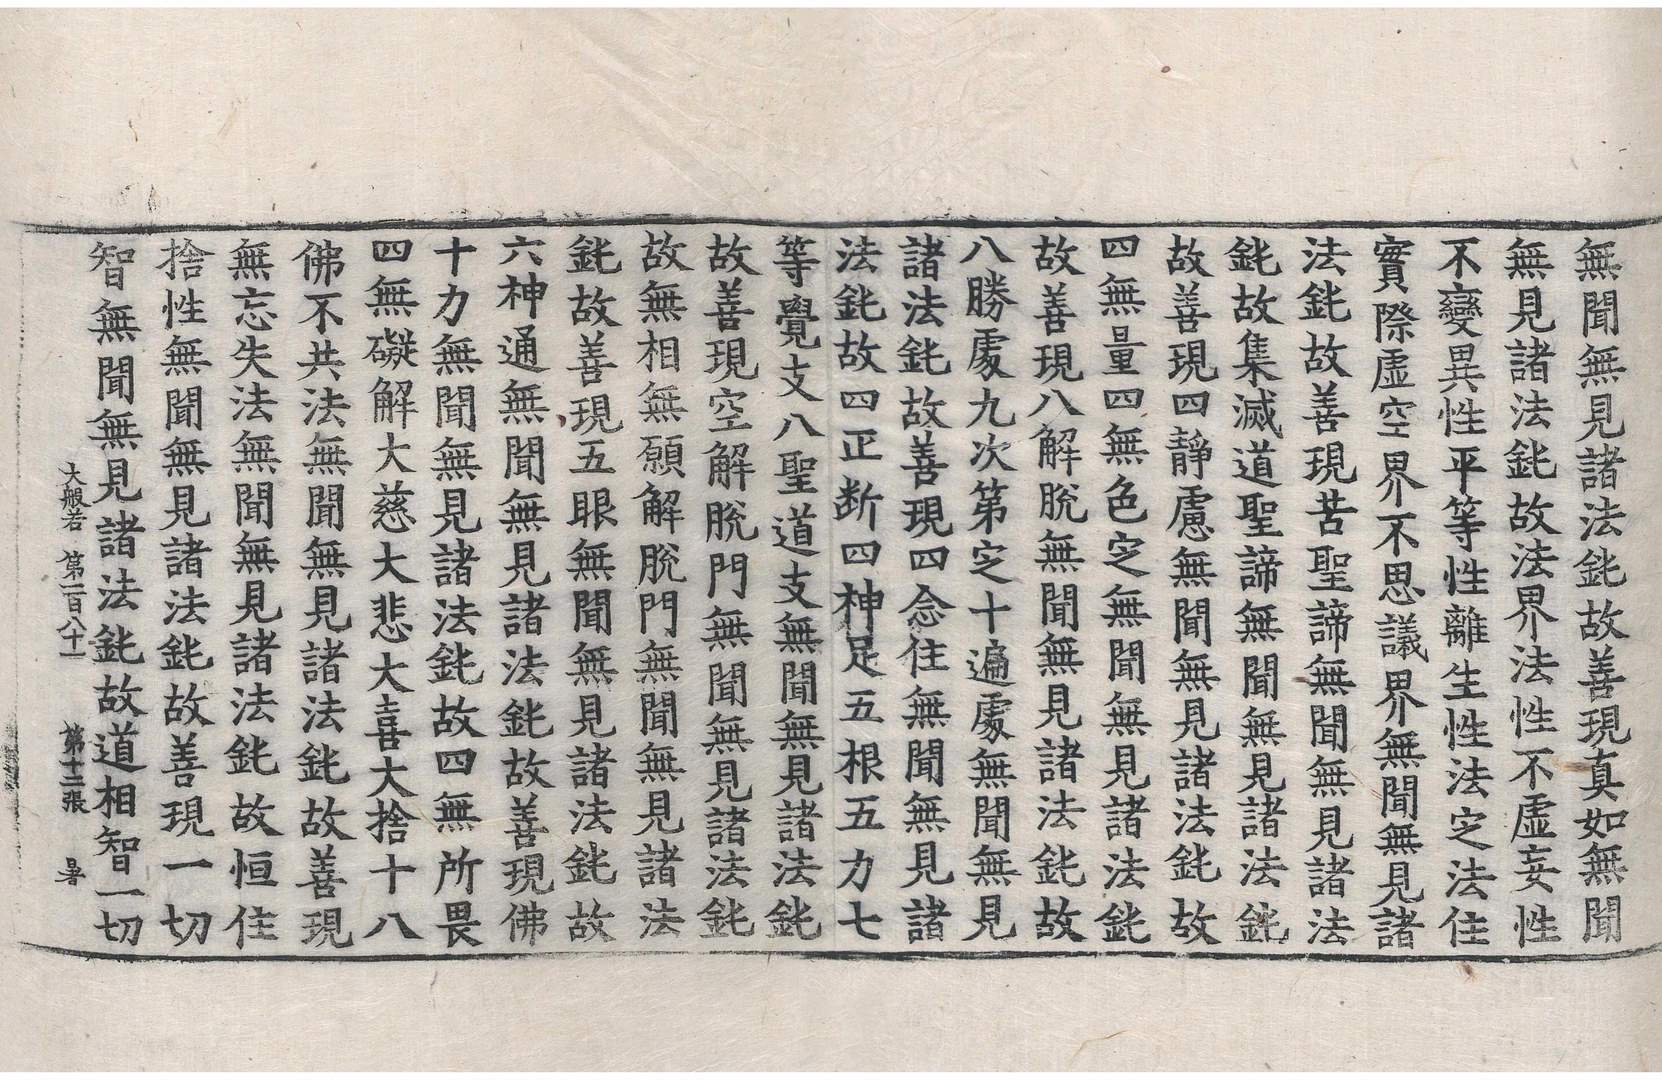 無聞無見諸法鈍故善現真如無聞
無見諸法鈍故法界法性不虛妄性
不變異性平等性離生性法定法住
實際虛空界不思議界無聞無見諸
法鈍故善現苦聖諦無聞無見諸法
鈍故集滅道聖諦無聞無見諸法鈍
故善現四靜慮無聞無見諸法鈍故
四無量四無色定無聞無見諸法鈍
故善現八解脫無聞無見諸法鈍故
八勝處九次第定十遍處無聞無見
諸法鈍故善現四念住無聞無見諸
法鈍故四正断四神足五根五力七
等覺支八聖道支無聞無見諸法鈍
故善現空解脫門無聞無見諸法鈍
故無相無願解脫門無聞無見諸法
鈍故善現五眼無聞無見諸法鈍故
六神通無聞無見諸法鈍故善現佛
十力無聞無見諸法鈍故四無所畏
四無礙解大慈大悲大喜大捨十八
佛不共法無聞無見諸法鈍故善現
無忘失法無聞無見諸法鈍故恒住
捨性無聞無見諸法鈍故善現一切
智無聞無見諸法鈍故道相智一切
大般若 第一百八十一 第十二張 暑